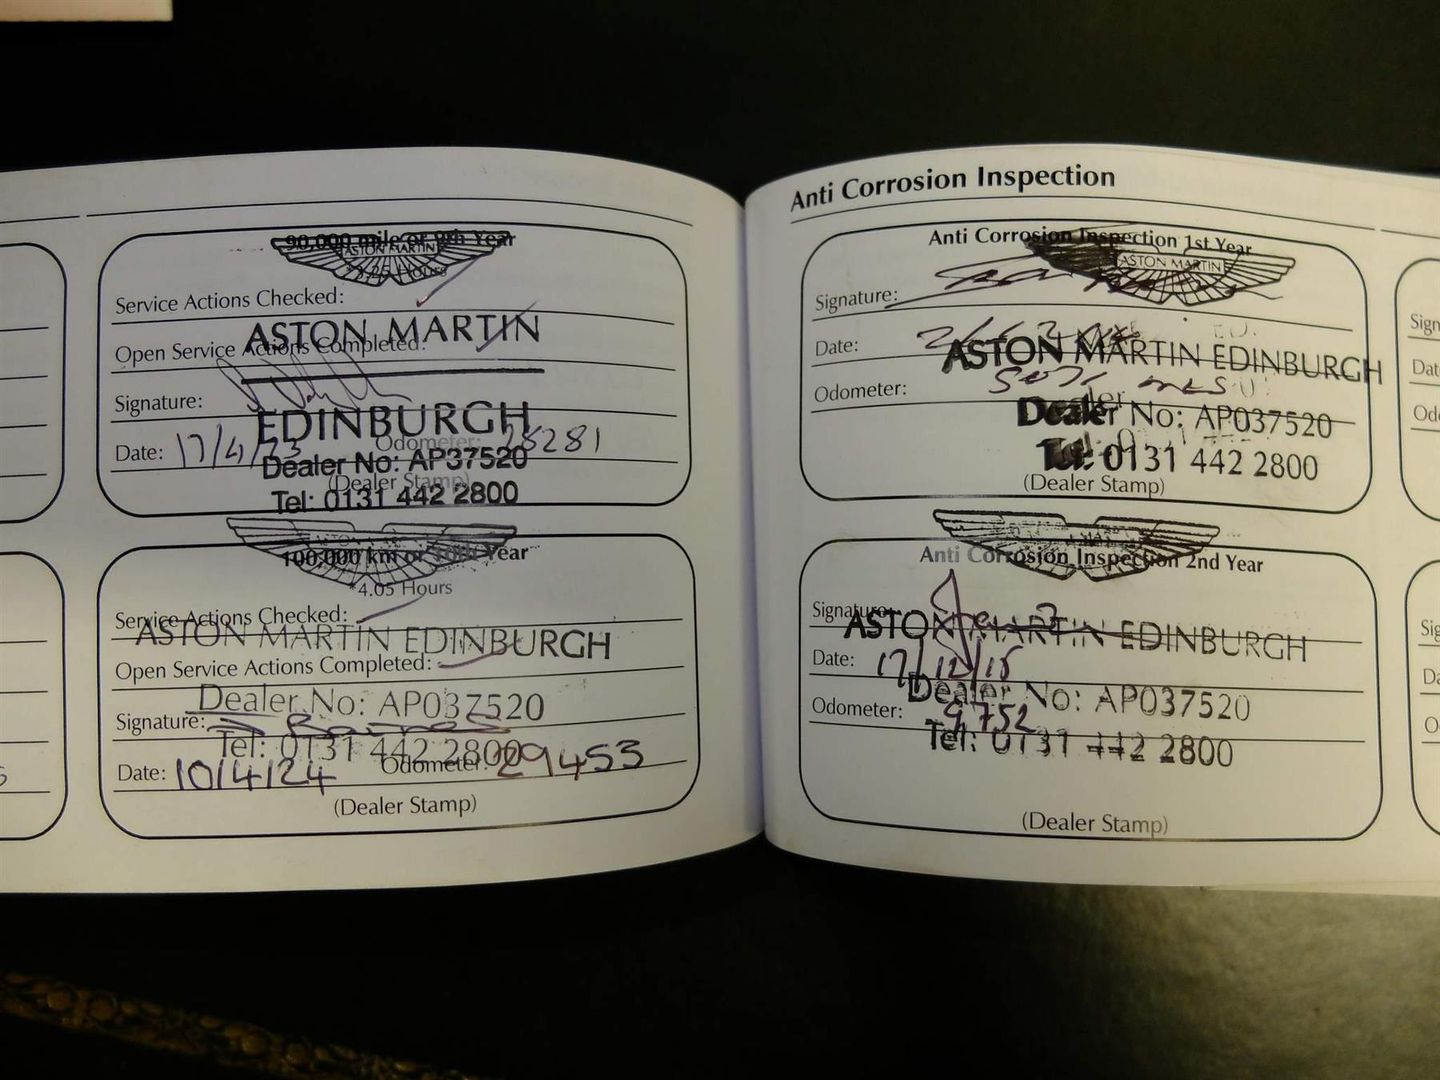 90,000 mile or 9th Year
ASTON MARTIN
Service Actions Checked:
ASTON MARTIN
Open Service Actions Completed:
Signature:
EDINBURGH
Date: 17/4/23 Odometer: 28281
Dealer No: AP37520
(Dealer Stamp)
Tel: 0131 442 2800
100,000 km or 10th Year
*4.05 Hours
Service Actions Checked:
ASTON MARTIN EDINBURGH
Open Service Actions Completed:
Dealer No: AP037520
Signature:
Tel: 0131 442 2800
Date: 10/4/24 Odometer: 29453
(Dealer Stamp)
Anti Corrosion Inspection
Anti Corrosion Inspection 1st Year
ASTON MARTIN
Signature:
Date:
ASTON MARTIN EDINBURGH
Odometer:
Dealer No: AP037520
Tel: 0131 442 2800
(Dealer Stamp)
Anti Corrosion Inspection 2nd Year
Signature:
ASTON MARTIN EDINBURGH
Date: 17/12/15
Dealer No: AP037520
Odometer: 9752
Tel: 0131 442 2800
(Dealer Stamp)